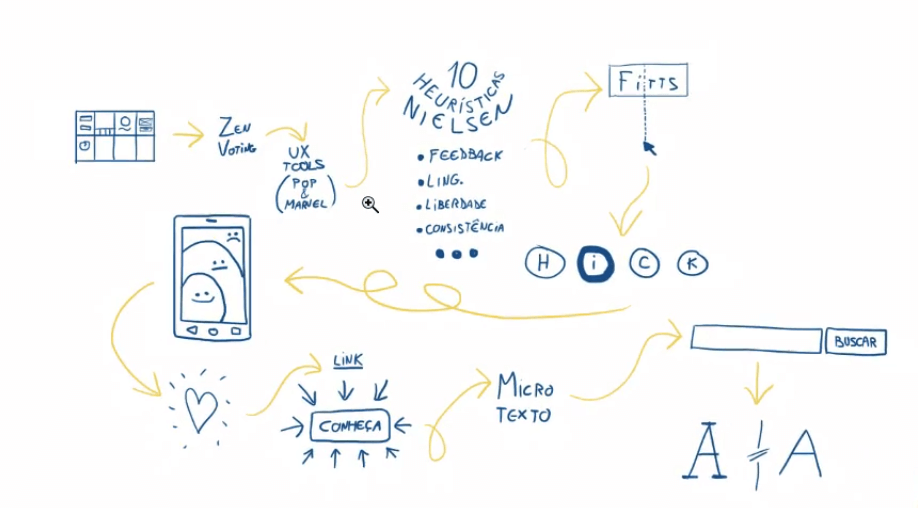 ZEN
VOTING
UX
TOOLS
(POP
&
MARVEL)
10
HEURÍSTICAS
NIELSEN
• FEEDBACK
• LING.
• LIBERDADE
• CONSISTÊNCIA
...
FITTS
H i C K
LINK
CONHEÇA
MICRO
TEXTO
BUSCAR
A ≠ A